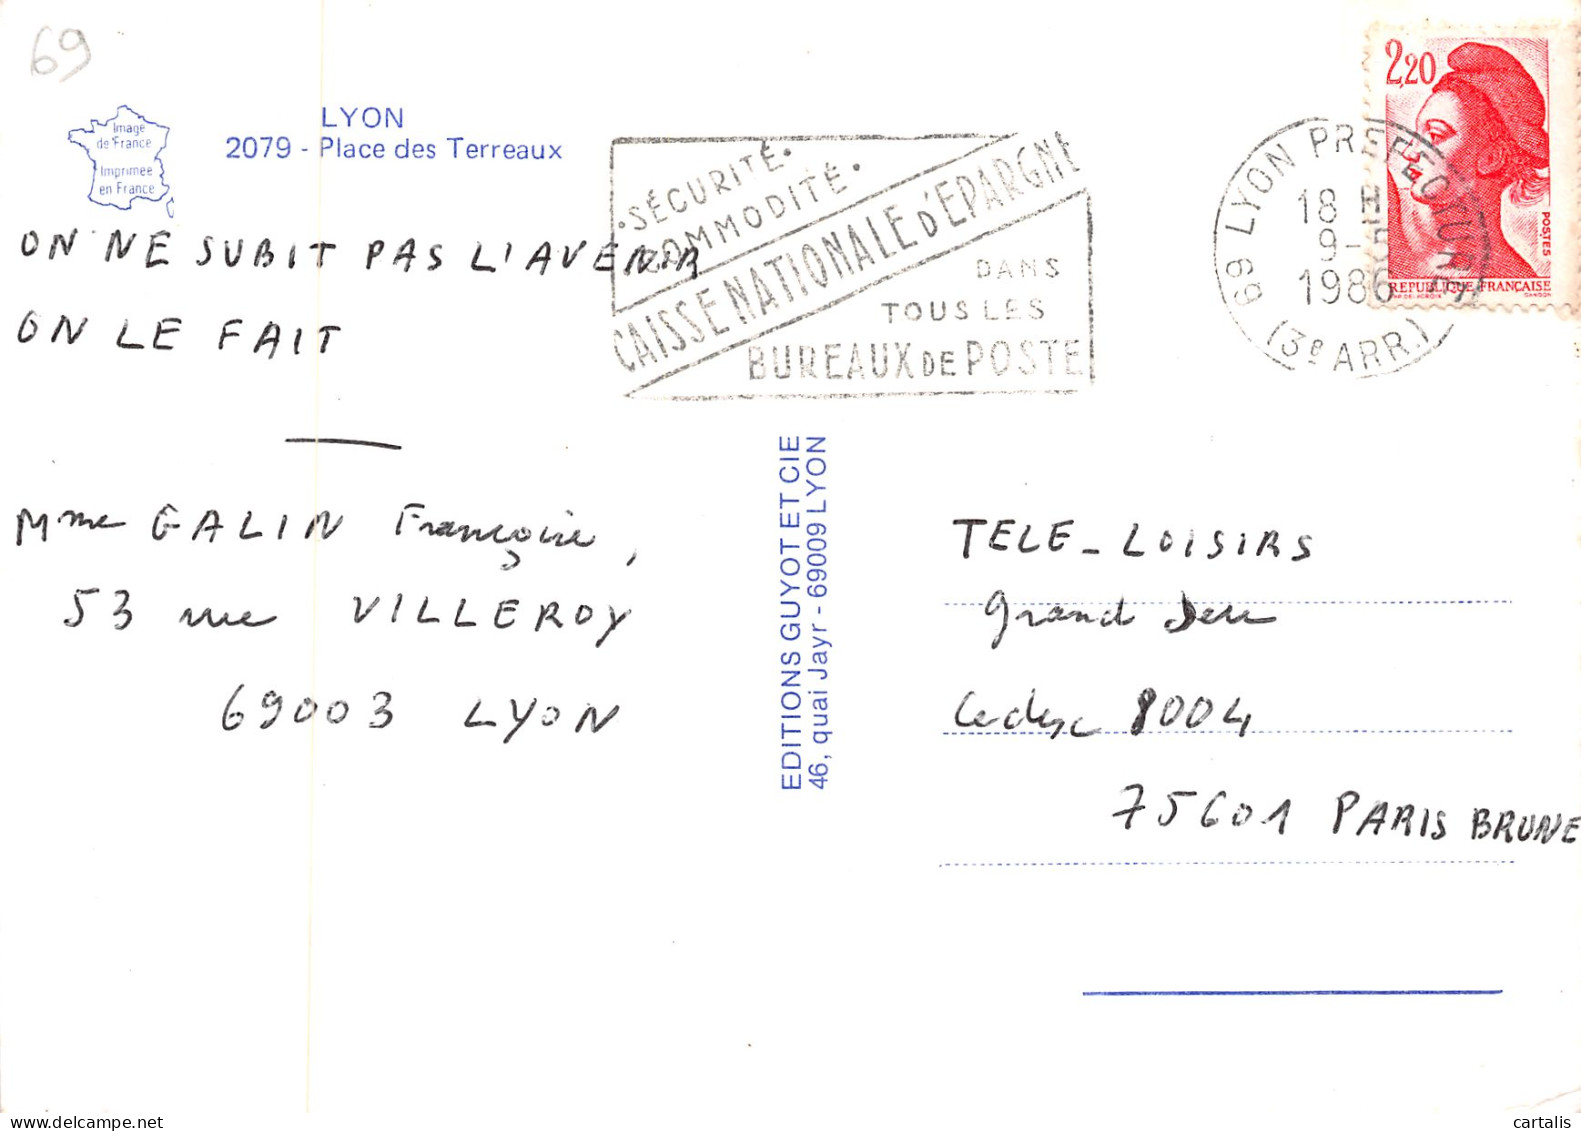 69
Image
de France
Imprimée
en France
LYON
2079 - Place des Terreaux
• SÉCURITÉ •
COMMODITÉ •
CAISSE NATIONALE d'EPARGNE
DANS
TOUS LES
BUREAUX DE POSTE
69 LYON PREFECTURE
18 H
9-5
1986
(3e ARR.)
2,20
POSTES
REPUBLIQUE FRANÇAISE
GANDON
ON NE SUBIT PAS L'AVENIR
ON LE FAIT
Mme GALIN Françoise,
53 rue VILLEROY
69003 LYON
EDITIONS GUYOT ET CIE
46, quai Jayr - 69009 LYON
TELE-LOISIRS
Grand
Cedex 8004
75601 PARIS BRUNE
cartalis